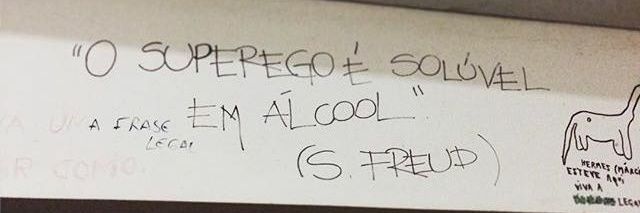 "O SUPEREGO É SOLÚVEL
EM ÁLCOOL".
(S. FREUD)
A FRASE
LEGAL
HERMES (MÁRCI
ESTEVE AQUI
VIVA A
LEGA